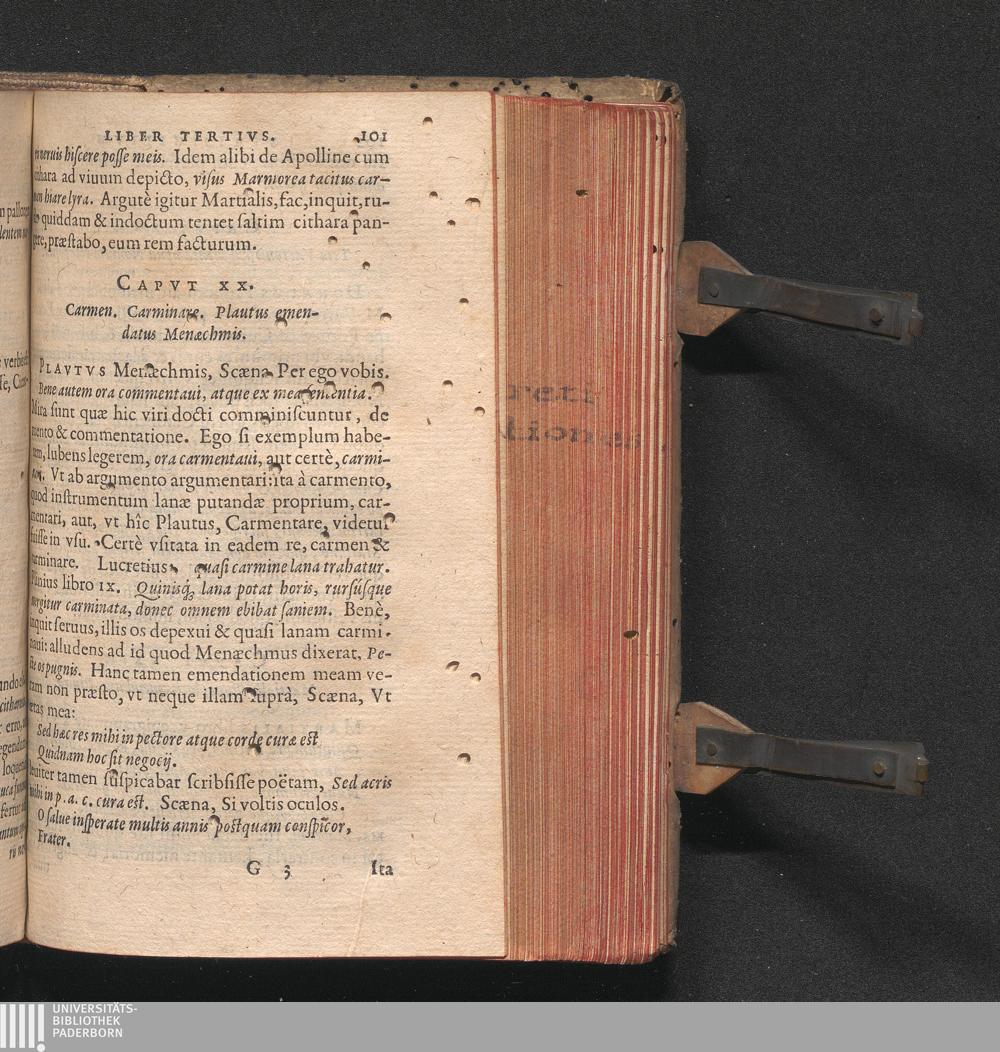 LIBER TERTIVS. 101
neruis hiscere posse meis. Idem alibi de Apolline cum
cithara ad viuum depicto, visus Marmorea tacitus car-
men hiare lyra. Argutè igitur Martialis, fac, inquit, ru-
quiddam & indoctum tentet saltim cithara pan-
gere, præstabo, eum rem facturum.
CAPVT XX.
Carmen. Carminare. Plautus emen-
datus Menæchmis.
PLAVTVS Menæchmis, Scæna Per ego vobis.
Bene autem ora commentaui, atque ex mea sententia.
Mira sunt quæ hic viri docti comminiscuntur, de
mento & commentatione. Ego si exemplum habe-
rem, lubens legerem, ora carmentaui, aut certè, carmi-
naui. Vt ab argumento argumentari: ita à carmento,
quod instrumentum lanæ putandæ proprium, car-
mentari, aut, vt hîc Plautus, Carmentare, videtur
fuisse in vsu. Certè vsitata in eadem re, carmen &
carminare. Lucretius, quasi carmine lana trahatur.
Plinius libro IX. Quinisq́; lana potat horis, rursúsque
mergitur carminata, donec omnem ebibat saniem. Benè,
inquit seruus, illis os depexui & quasi lanam carmi-
naui: alludens ad id quod Menæchmus dixerat, Pe-
os pugnis. Hanc tamen emendationem meam ve-
ram non præsto, vt neque illam suprà, Scæna, Vt
ætas mea:
Sed hæc res mihi in pectore atque corde curæ est
Quidnam hoc sit negocij.
leuiter tamen suspicabar scribsisse poëtam, Sed acris
mihi in p. a. c. cura est. Scæna, Si voltis oculos.
O salue insperate multis annis postquam conspicor,
Frater.
G 3 Ita
UNIVERSITÄTS-
BIBLIOTHEK
PADERBORN